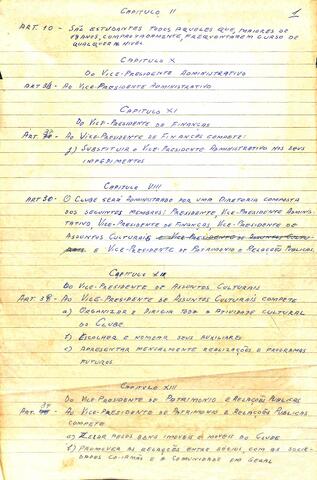 CAPITULO II
1
ART. 10 - SÃO ESTUDANTES TODOS AQUELES QUE, MAIORES DE
ANOS, COMPROVADAMENTE, FREQUENTAREM CURSO DE
QUALQUER NIVEL
CAPITULO X
DO VICE-PRESIDENTE ADMINISTRATIVO
ART. AO VICE-PRESIDENTE ADMINISTRATIVO
CAPITULO XI
DO VICE-PRESIDENTE DE FINANÇAS
ART. AO VICE-PRESIDENTE DE FINANÇAS COMPETE:
J) SUBSTITUIR O VICE PRESIDENTE ADMINISTRATIVO NOS SEUS
IMPEDIMENTOS
CAPITULO VIII
ART 30 - O CLUBE SERÁ ADMINISTRADO POR UMA DIRETORIA COMPOSTA
DOS SEGUINTES MEMBROS: PRESIDENTE, VICE-PRESIDENTE ADMINIS-
TRATIVO, VICE-PRESIDENTE DE FINANÇAS, VICE-PRESIDENTE DE
ASSUNTOS CULTURAIS E VICE-PRESIDENTE DE ASSUNTOS CULTU-
RAIS E VICE-PRESIDENTE DE PATRIMONIO E RELAÇÕES PUBLICAS.
CAPITULO XII
DO VICE-PRESIDENTE DE ASSUNTOS CULTURAIS
ART. 38 - AO VICE-PRESIDENTE DE ASSUNTOS CULTURAIS COMPETE
a) ORGANIZAR E DIRIGIR TODA A ATIVIDADE CULTURAL
DO CLUBE
b) ESCOLHER E NOMEAR SEUS AUXILIARES
c) APRESENTAR MENSALMENTE REALIZAÇÕES E PROGRAMAS
FUTUROS
CAPITULO XIII
DO VICE PRESIDENTE DE PATRIMONIO E RELAÇÕES PUBLICAS
ART. AO VICE-PRESIDENTE DE PATRIMONIO E RELAÇÕES PUBLICAS
COMPETE
a) ZELAR PELOS BENS IMOVEIS E MOVEIS DO CLUBE
f) PROMOVER AS RELAÇÕES ENTRE SOCIOS, COM AS SOCIE-
DADES CO-IRMÃS E A COMUNIDADE EM GERAL